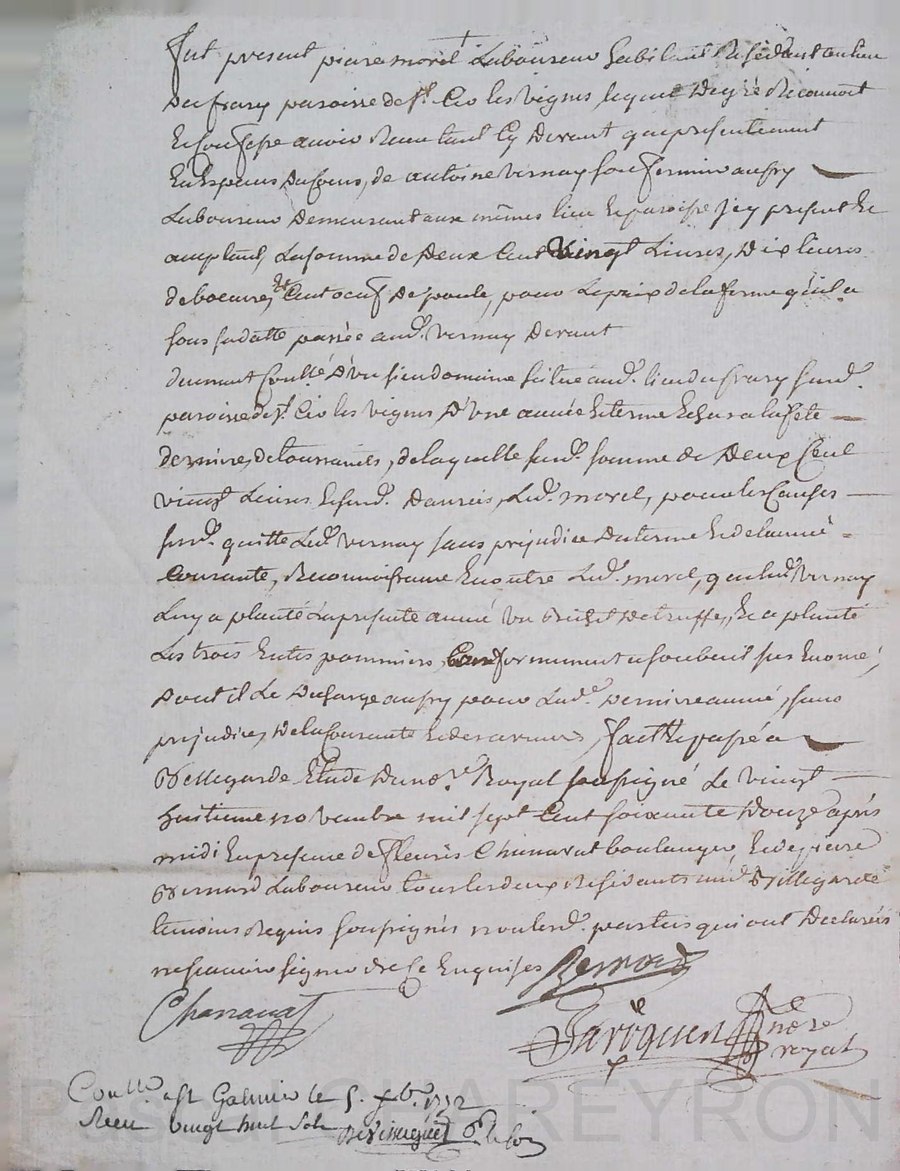 fut present piere morel Laboureur habitant Residant au lieu
Du frary paroisse de st Cir les vignes lequel De gré Reconnoit
Et Confesse avoir Receu tant Cy Devant que presentement
En Especes De Cours, de antoine vernay son fermier aussy
Laboureur Demeurant aux mêmes lieu Et paroisse Icy present Et
acceptant, La somme de Deux Cent vingt Livres, Dix livres
de boeure, Et Cent oeuf De poule, pour Le prix de la ferme qu'il a
sous sa datte passée aud. vernay Devant
d'un domaine situé aud. lieu du frary susd.
paroisse de st Cir les vignes D'une année Et terme Echu a la fete
derniere de toussaints, de laquelle susd. somme de Deux Cent
vingt Livres Et susd. Danrées, Led. morel, pour les Causes
susd. quitte Led. vernay sans prejudice Du terme Et de l'année
Courante, Reconnoissant En outre Led. morel, que led. vernay
Luy a planté La presente année Et a planté
Les trois Entes pommiers,
Dont il Le Decharge aussy pour Lade. Derniere année, sans
prejudice De la Courante Et des fait Et passé a
Bellegarde Etude Du nore. Royal soussigné Le vingt
huitieme novembre mil sept Cent soixante Douze après
midi En presence de fleuris Chanavat boulanger, Et de piere
Bernard Laboureur tous les deux Residants aud. Bellegarde
temoins Requis soussignés non lesd. parties qui ont Declarées
ne scavoir signer de ce Enquises
Bernard
Chanavat
Jaroquen
nore
royal
Contlle. a St Galmier le 5. xbre. 1772
Receu vingt huit sols
Pascal CHAREYRON